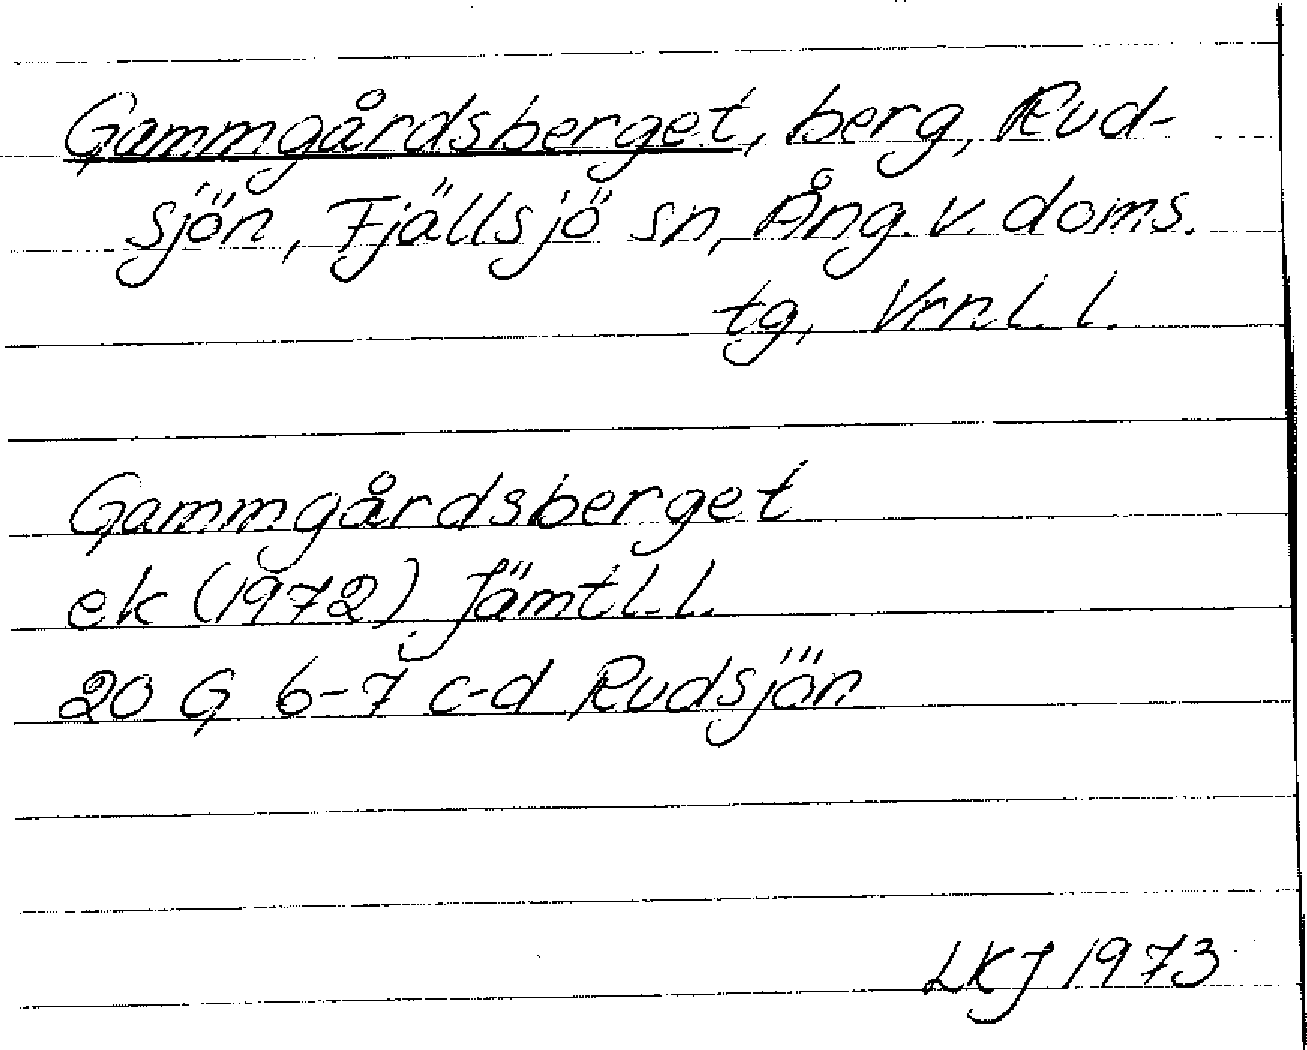 Gammgårdsberget, berg, Rud-
sjön, Fjällsjö sn, Ång. v. doms.
tg, Vrnl. l.
Gammgårdsberget
ek (1972), Jämtl. l.
20 G 6-7 c-d Rudsjön
LKJ 1973